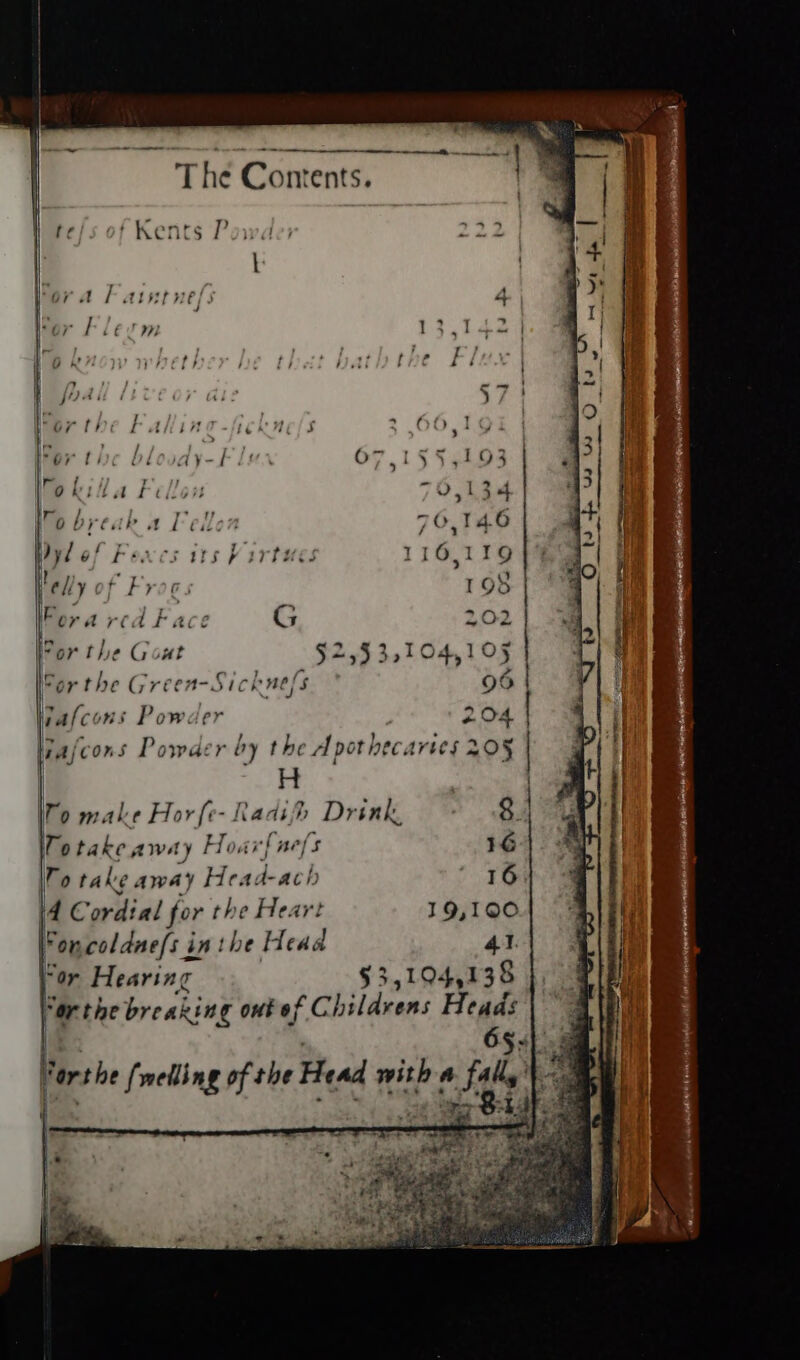 The Contents.
teſs of Kents Powder 222
F
For a Faintneſs 4
For Flegm 13,142
To know whether he that hath the Flux
ſhall live or die 57
For the Falling-ſickneſs 3,66,191
For the bloody-Flux 67,155,193
To kill a Fellon 70,134
To break a Fellon 76,146
Oyl of Foxes its Virtues 116,119
Jelly of Frogs 198
For a red Face G 202
For the Gout 52,53,104,105
For the Green-Sickneſs 96
Gaſcons Powder 204
Gaſcons Powder by the Apothecaries 205
H
To make Horſe-Radiſh Drink 8
To take away Hoarſneſs 16
To take away Head-ach 16
A Cordial for the Heart 19,100
For coldneſs in the Head 41
For Hearing 53,104,138
For the breaking out of Childrens Heads
65
For the ſwelling of the Head with a fall,
81